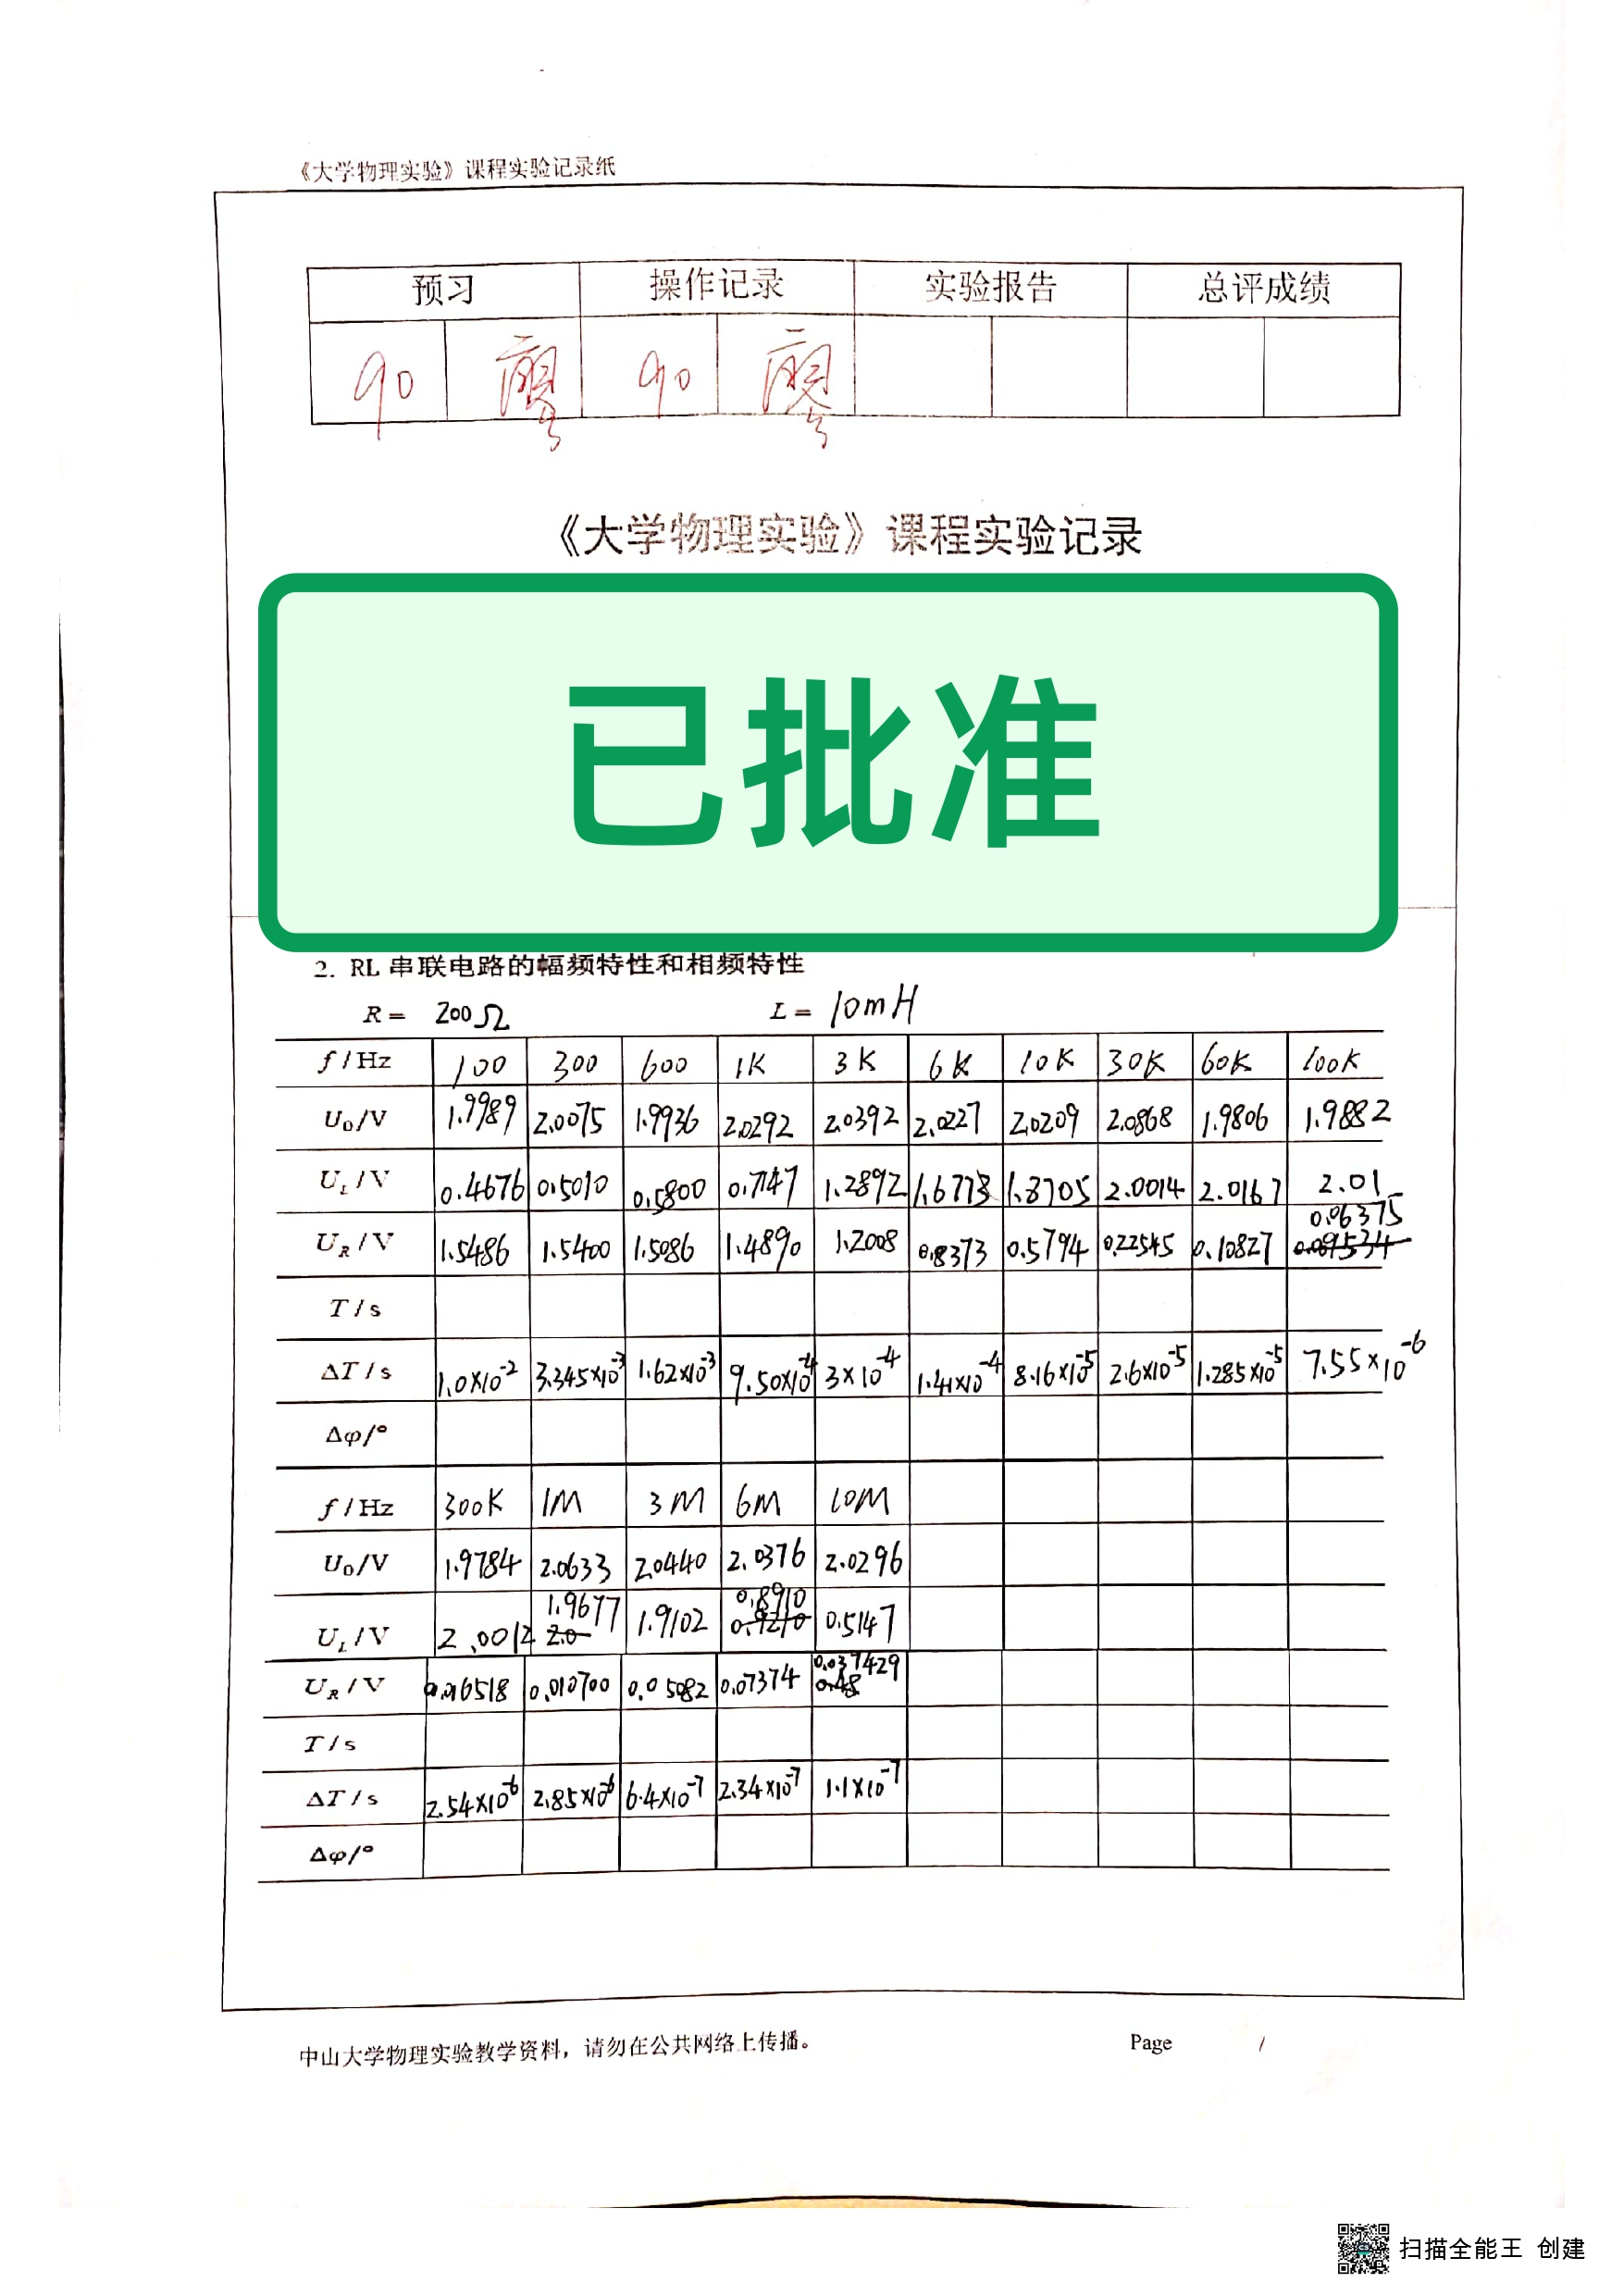 《大学物理实验》课程实验记录纸
预习 操作记录 实验报告 总评成绩
90 廖 90 廖
《大学物理实验》课程实验记录
已批准
2. RL 串联电路的幅频特性和相频特性
R = 200Ω L = 10mH
f / Hz 100 300 600 1K 3K 6K 10K 30K 60K 100K
U₀/V 1.9989 2.0075 1.9936 2.0292 2.0392 2.0227 2.0209 2.0868 1.9806 1.9882
U_L/V 0.4676 0.5010 0.5800 0.7147 1.2892 1.6773 1.8705 2.0014 2.0167 2.01
0.06375
U_R/V 1.5486 1.5400 1.5086 1.4890 1.2008 0.8373 0.5794 0.22545 0.10827
T/s
ΔT/s 1.0×10⁻² 3.345×10⁻³ 1.62×10⁻³ 9.50×10⁻⁴ 3×10⁻⁴ 1.41×10⁻⁴ 8.16×10⁻⁵ 2.6×10⁻⁵ 1.285×10⁻⁵ 7.55×10⁻⁶
Δφ/°
f / Hz 300K 1M 3M 6M 10M
U₀/V 1.9784 2.0633 2.0440 2.0376 2.0296
1.9677 0.8910
U_L/V 2.0012 2.0 1.9102 0.5147
0.037429
U_R/V 0.016518 0.010700 0.05082 0.07374 0.48
T/s
ΔT/s 2.54×10⁻⁶ 2.85×10⁻⁶ 6.4×10⁻⁷ 2.34×10⁻⁷ 1.1×10⁻⁷
Δφ/°
中山大学物理实验教学资料，请勿在公共网络上传播。 Page /
扫描全能王 创建